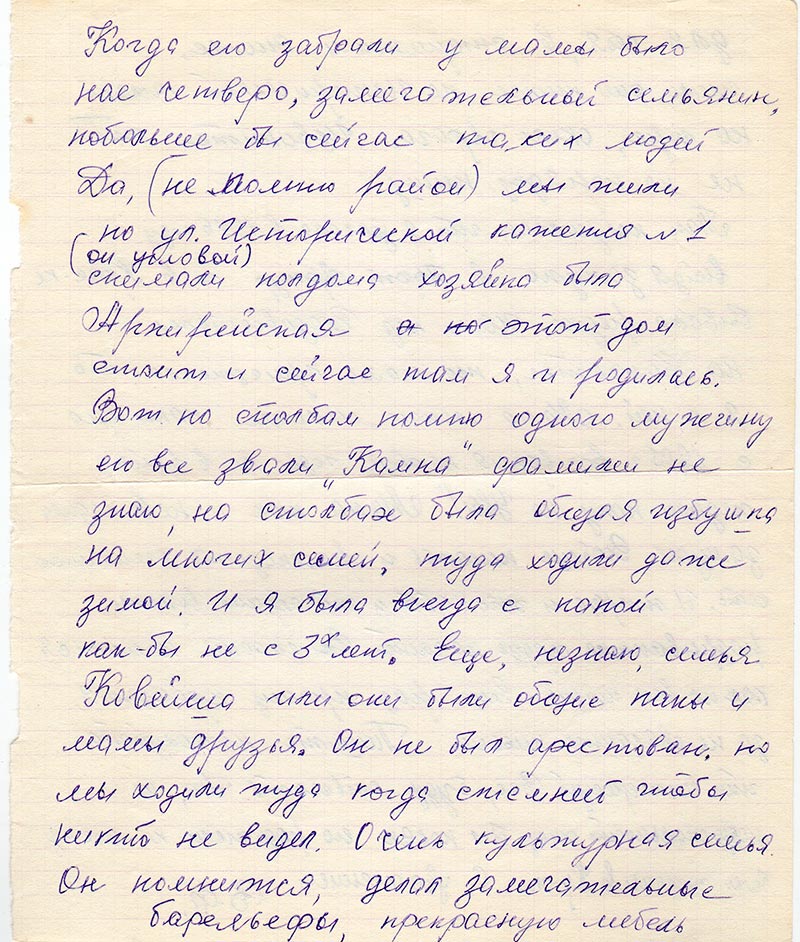 Когда его забрали у мамы было
нас четверо, замечательный семьянин,
побольше бы сейчас таких людей
Да, (не помню район) мы жили
по ул. Исторической кажется № 1
(он угловой)
снимали полдома хозяйка была
Архирейская а на этот дом
стоит и сейчас там я и родилась.
Вот по столбам помню одного мужчину
его все звали "Кампа" фамилии не
знаю, на столбах была общая избушка
на многих семей, туда ходили даже
зимой. И я была всегда с папой
как-бы не с 3х лет. Еще, незнаю, семья
или они были общие папы и
мамы друзья. Он не был арестован. но
мы ходили туда когда стемнеет чтобы
никто не видел. Очень культурная семья.
Он помнится, делал замечательные
барельефы, прекрасную мебель